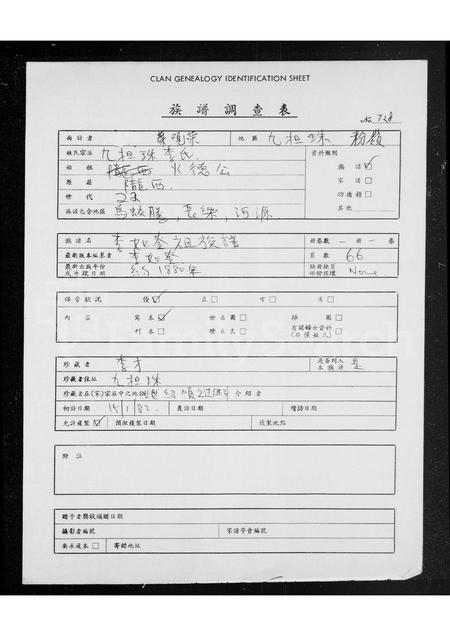 CLAN GENEALOGY IDENTIFICATION SHEET
族譜調查表
No 728
面訪者 地區 九担珠 粉嶺
姓氏宗派 九担珠李氏 資料類別
始祖 火德公 族譜
原籍 隴西 家譜
世代 功德榜
族譜包含地區 烏蛟騰, 長樂, 河源 其他
族譜名 李如奎祖族譜 冊卷數 一冊一卷
最新版本編纂者 李如奎 頁數 66
最新出版年份或升段日期 約1880年 None
保管狀況 優 良 可 劣
內容 寫本 世系圖 插圖
刊本 世系表 有關婦女資料
珍藏者 李才 是否列入本族譜 是
珍藏者住址 九担珠
珍藏者在(宗)宗族中之地位 介紹者
初訪日期 15/1/82. 覆訪日期 增訪日期
允許複製 預擬複製日期 複製地點
附註
贈予者獎狀頒贈日期
攝影者編號 家譜學會編號
要求複本 寄贈地址
FamilySearch